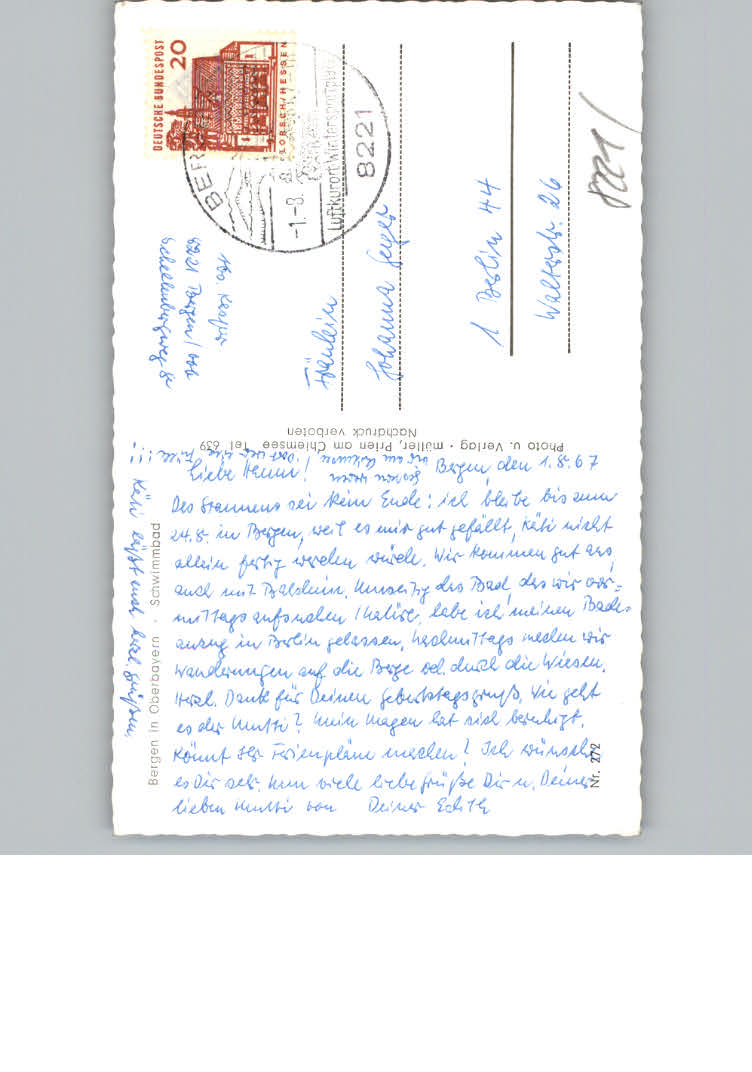 Liebe Hanni! Bergen, den 1.8.67
Des Staunens sei kein Ende: ich bleibe bis zum
24.8. in Bergen, weil es mir gut gefällt, Käti nicht
allein fertig werden würde. Wir kommen gut aus,
auch mit Umseitig das Bad, das wir vor=
mittags aufsuchen habe ich meinen Bade-
anzug in Berlin gelassen, nachmittags machen wir
Wanderungen auf die Berge od. durch die Wiesen.
Herzl. Dank für Deinen Geburtstagsgruß. Wie geht
es der Mutti? Mein Magen hat sich beruhigt.
Könnt Ihr Ferienpläne machen? Ich wünsche
es Dir sehr. Nun viele liebe Grüße Dir u. Deiner
lieben Mutti von Deiner Edith
Käti läßt euch herzl. grüßen.
Bergen in Oberbayern · Schwimmbad
Nr. 272
Photo u. Verlag · müller, Prien am Chiemsee Tel. 639
Nachdruck verboten
DEUTSCHE BUNDESPOST
20
LORSCH/HESSEN
-1.-8.
Luftkurort Wintersportplatz
8221
8221 Bergen/Obb
Fräulein
Johanna Geiger
1 Berlin 44
Walterstr. 26
8221/